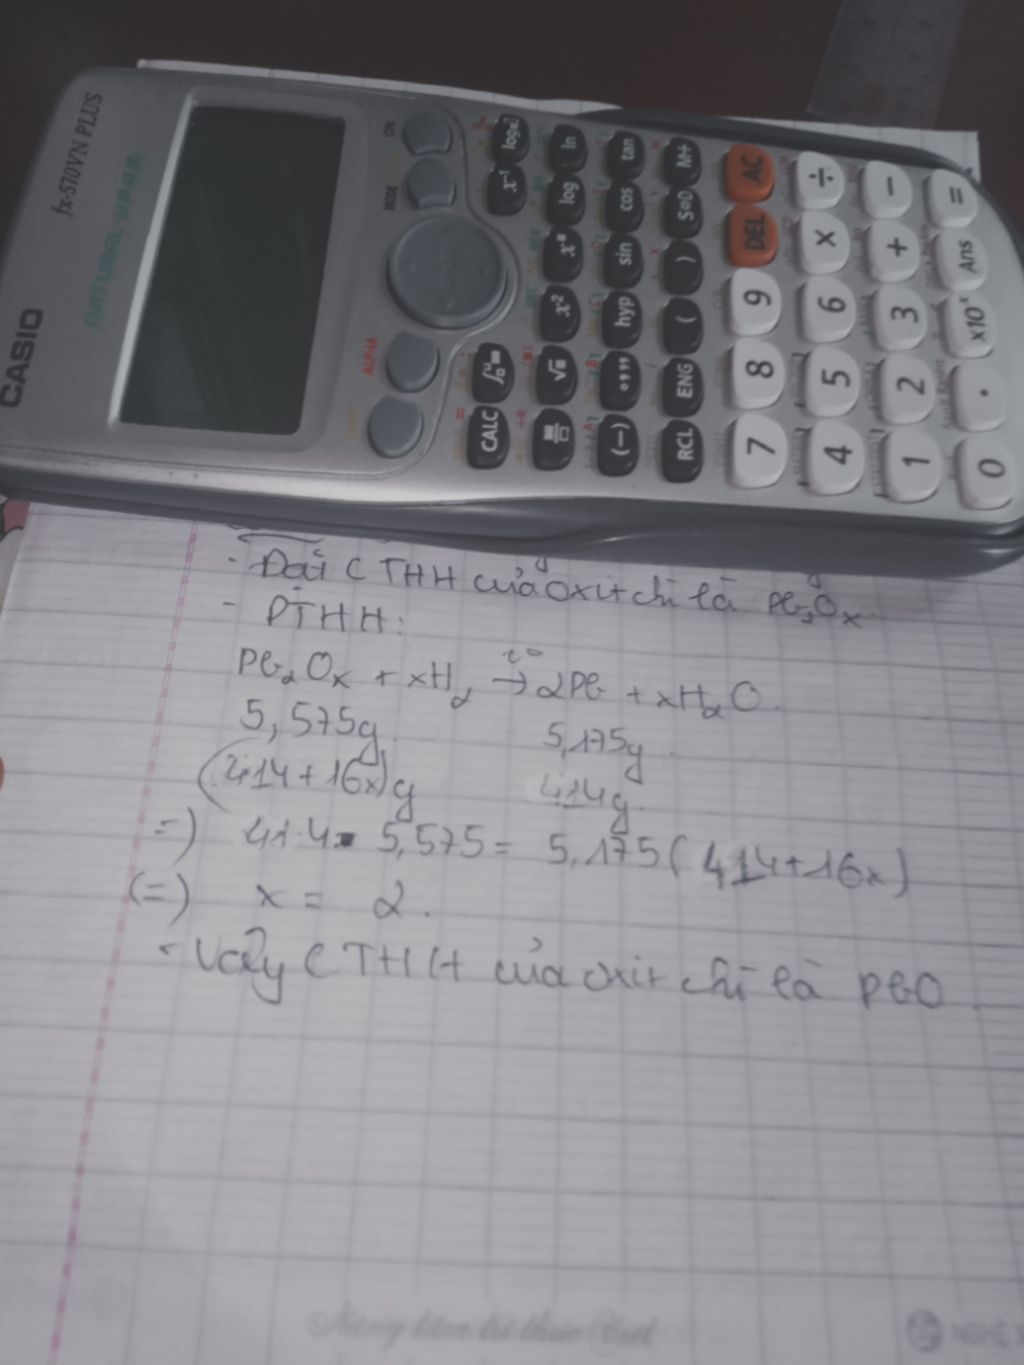 CASIO
fx-570VN PLUS
NATURAL-V.P.A.M.
SHIFT ALPHA MODE ON
CALC ∫ x⁻¹ log
√ x² log ln
(−) °''' hyp sin cos tan
RCL ENG ( ) S⇔D M+
7 8 9 DEL AC
4 5 6 × ÷
1 2 3 + −
0 . ×10ˣ Ans =
- Đặt CTHH của oxit chì là Pb₂Oₓ.
- PTHH:
Pb₂Oₓ + xH₂ →t° 2Pb + xH₂O.
5,575g 5,175g
(414+16x)g 414g.
=) 414. 5,575 = 5,175(414+16x)
(=) x = 2.
- Vậy CTHH của oxit chì là PbO.